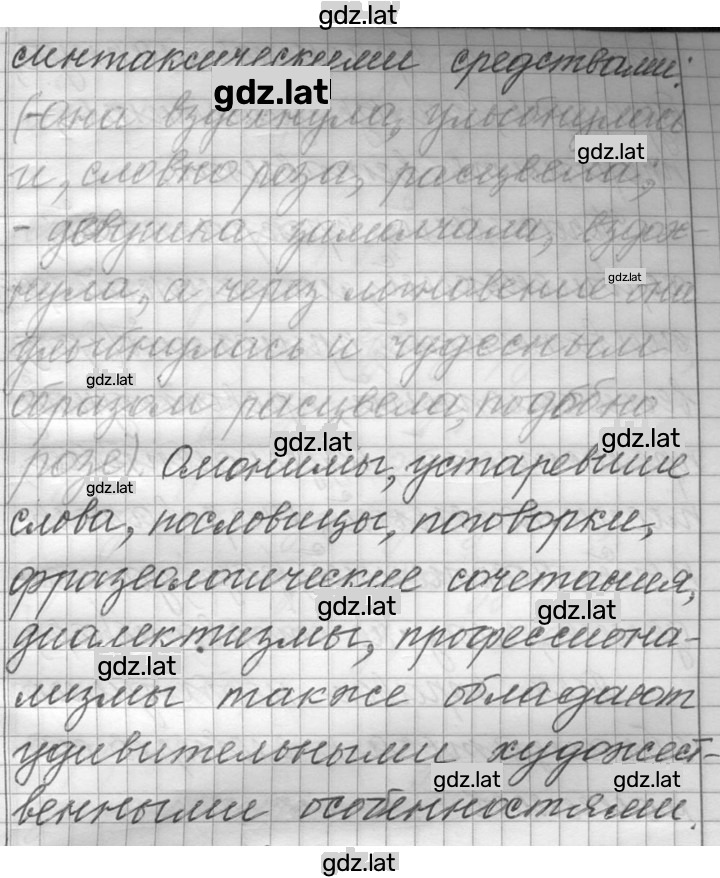 gdz.lat
синтаксическими средствами:
gdz.lat
(-Она вздохнула, улыбнулась
gdz.lat
и, словно роза, расцвела;
- девушка замолчала, вздох-
gdz.lat
нула, а через мгновение она
улыбнулась и чудесным
gdz.lat
образом расцвела, подобно
gdz.lat gdz.lat
розе). Омонимы, устаревшие
gdz.lat
слова, пословицы, поговорки,
фразеологические сочетания,
gdz.lat gdz.lat
диалектизмы, профессиона-
gdz.lat
лизмы также обладают
удивительными художест-
gdz.lat gdz.lat
венными особенностями.
gdz.lat